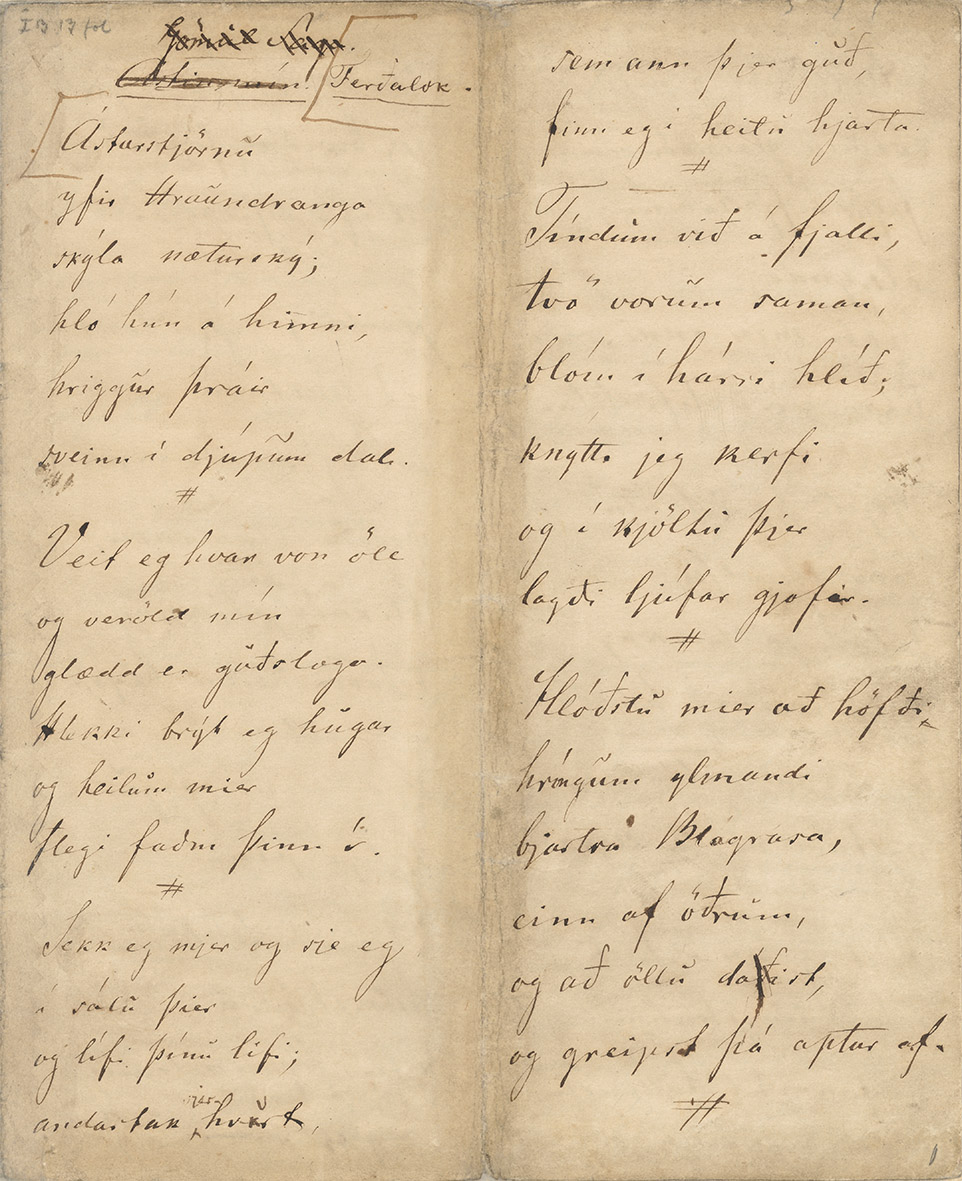 ÍB 13 fol
Gömul saga.
Ástin mín. Ferðalok.
Ástarstjörnu
yfir Hraundranga
skýla næturský;
hló hún á himni,
hriggur þráir
sveinn í djúpum dali.
#
Veit eg hvar von öll
og veröld mín
glædd er guðsloga.
Hlekki brýt eg hugar
og heilum mier
fleygi faðm þinn í.
#
Sekk eg mjer og sje eg
í sálu þier
og lífi þínu lifi;
andartak sjer hvurt,
sem ann þjer guð,
finn eg í heitu hjarta.
#
Tíndum við á fjalli,
tvö vorum saman,
blóm í hárri hlíð;
knytti jeg kerfi
og í kjöltu þjer
lagði ljúfar gjafir.
#
Hlóðstu mier að höfði
hríngum ylmandi
bjartra Blágrasa,
einn af öðrum,
og að öllu dáðist,
og greipst þá aptur af.
#